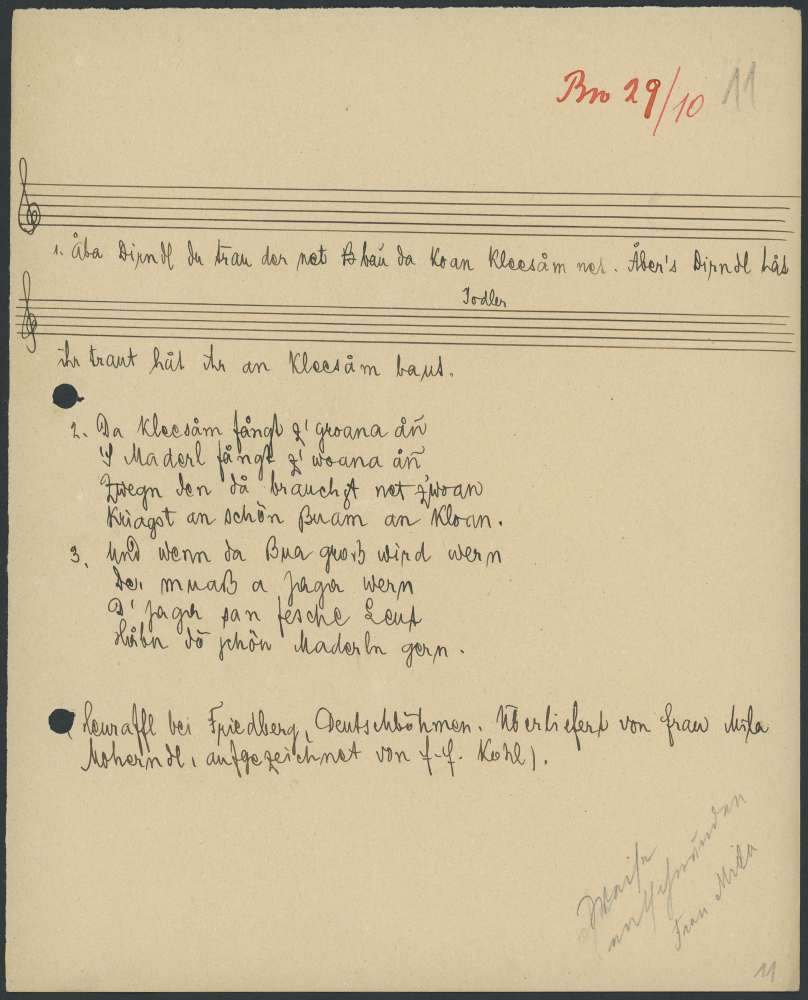 Bn 29/10 11
1. Åba Dirndl du trau der net B bau da koan Kleesåm net. Åber's Dirndl håt
Jodler
ihr traut håt ihr an Kleesåm baut.
2. Da Kleesåm fångt z' groana åñ
'S Maderl fångt z' woana åñ
Zwegn den då brauchst net z'woan
Kriagst an schön Buam an kloan.
3. Und wenn da Bua groß wird wern
Der muaß a Jaga wern
D' Jaga san fesche Leut
Håbn dö schön Maderln gern.
(Heuraffl bei Friedberg, Deutschböhmen. Überliefert von Frau Mila
Moherndl, aufgezeichnet von f. f. Kohl).
Waise
Frau Mila
11